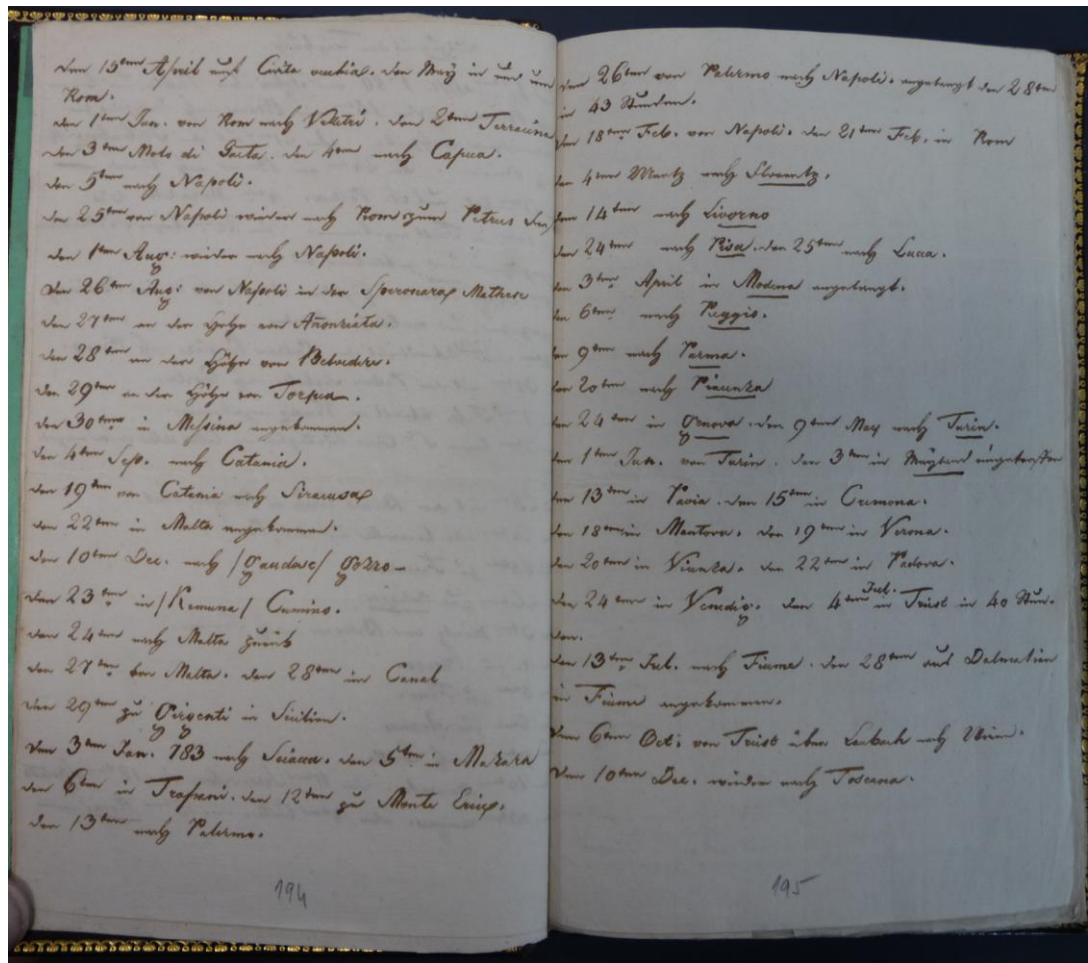 den 15ten April auf Civita vechia. den May in und um
Rom.
den 1ten Jun. von Rom nach Veletri. den 2ten Terracina
den 3ten Molo di Gaeta. den 4ten nach Capua.
den 5ten nach Napoli.
den 25ten von Napoli wieder nach Rom zum Petrus
den 1ten Aug: wieder nach Napoli.
den 26ten Aug: von Napoli in der Speronara Mathese
den 27ten an der Höhe von Anonziata.
den 28ten an der Höhe von Belvedere.
den 29ten an der Höhe von Torpea.
den 30ten in Messina angekommen.
den 4ten Sep. nach Catania.
den 19ten von Catania nach Siracusa
den 22ten in Malta angekommen.
den 10ten Dec. nach /Gaudase/ Gozzo
den 23ten in /Kemuna/ Cumino.
den 24ten nach Malta zurück
den 27ten von Malta. den 28ten im Canal
den 29ten zu Girgenti in Sicilien.
den 3ten Jan. 783 nach Sciacca. den 5ten in Mazara
den 6ten in Trapani. den 12ten zu Monte Erice.
den 13ten nach Palermo.
194
den 26ten von Palermo nach Napoli. angelangt den 28ten
in 43 Stunden.
den 18ten Feb. von Napoli. den 21ten Feb. in Rom
den 4ten Martz nach Florentz.
den 14ten nach Livorno
den 24ten nach Pisa. den 25ten nach Lucca.
den 3ten April in Modena angelangt.
den 6ten nach Reggio.
den 9ten nach Parma.
den 20ten nach Piacenza
den 24ten in Genova. den 9ten May nach Turin.
den 1ten Jun. von Turin. den 3ten in Mayland eingetroffen
den 13ten in Pavia. den 15ten in Cremona.
den 18ten in Mantova. den 19ten in Verona.
den 20ten in Vicenza. den 22ten in Padova.
den 24ten in Venedig. den 4ten Jul. in Triest in 40 Stun-
den.
den 13ten Jul. nach Fiume. den 28ten aus Dalmatien
in Fiume angekommen.
den 6ten Oct: von Triest über Laubach nach Wien.
den 10ten Dec. wieder nach Toscana.
195